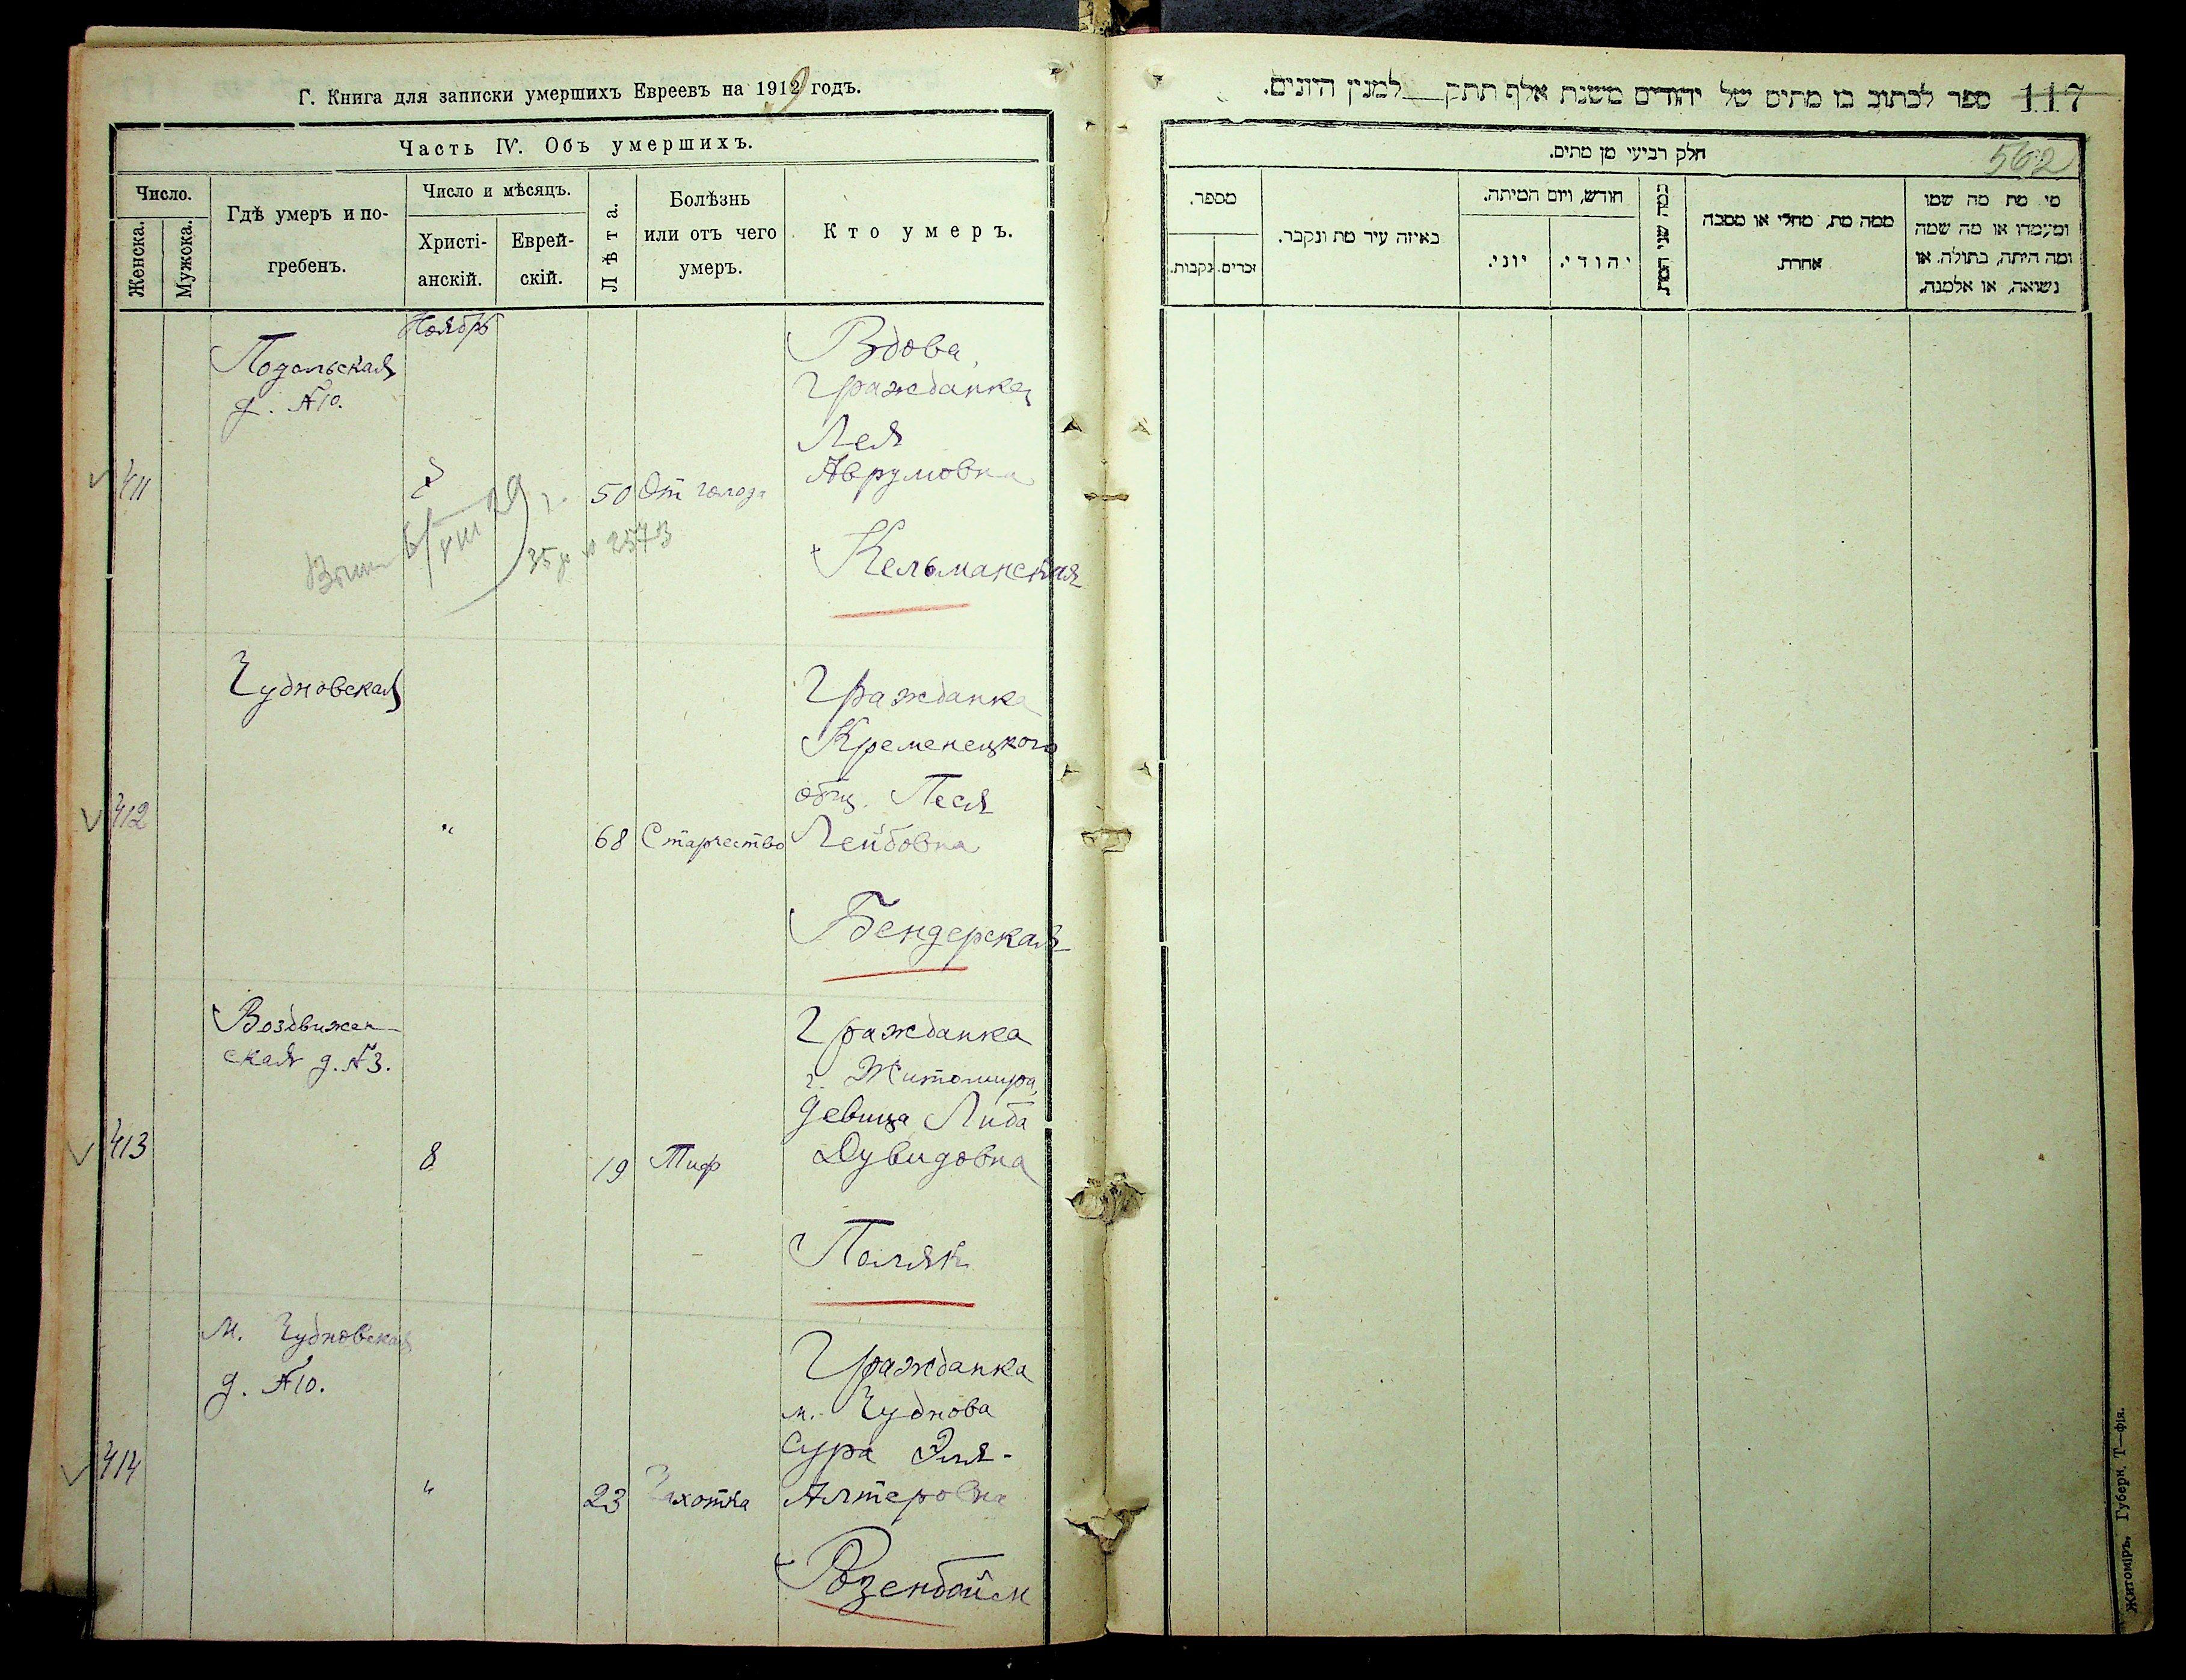 Г. Книга для записки умершихъ Евреевъ на 1919 годъ.
Часть IV. Объ умершихъ.
Число.
Женска.
Мужска.
Гдѣ умеръ и по-
гребенъ.
Число и мѣсяцъ.
Христі-
анскій.
Еврей-
скій.
Лѣта.
Болѣзнь
или отъ чего
умеръ.
Кто умеръ.
Ноябрь
411
Подольская
д. №10.
50
От голода
Вдова,
Гражданка
Лея
Аврумовна
Кельманская
6/VIII 29 г.
№ 2573
412
Чудновская
"
68
Старчество
Гражданка
Кременецкого
общ. Песя
Лейбовна
Бендерская
413
Воздвижен-
ская д. №3.
8
19
Тиф
Гражданка
г. Житомира,
девица Либа
Дувидовна
Поляк
414
М. Чудновская
д. №10.
"
23
Чахотка
Гражданка
м. Чуднова
Сура Эля-
Алтеровна
Розенбойм
117 ספר לכתוב בו מתים של יהודים משנת אלף תתק למנין היונים.
562
חלק רביעי מן מתים.
מספר.
זכרים.
נקבות.
באיזה עיר מת ונקבר.
חודש, ויום המיתה.
יוני.
יהודי.
כמה שני המת
ממה מת, מחלי או מסבה
אחרת.
מי מת מה שמו
ומעמדו או מה שמה
ומה היתה, בתולה, או
נשואה, או אלמנה.
Житоміръ, Губерн. Т—фія.